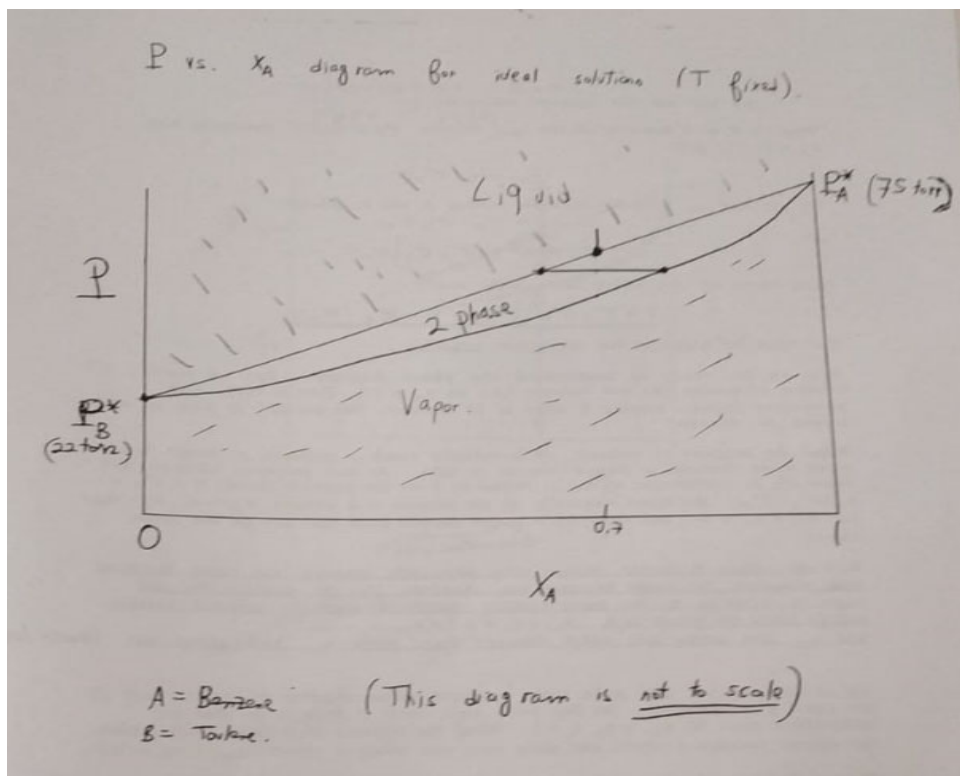 P vs. XA diagram for ideal solutions (T fixed).
Liquid
PA* (75 torr)
P
2 phase
PB*
(22 torr)
Vapor.
0
0.7
1
XA
A = Benzene (This diagram is not to scale)
B =